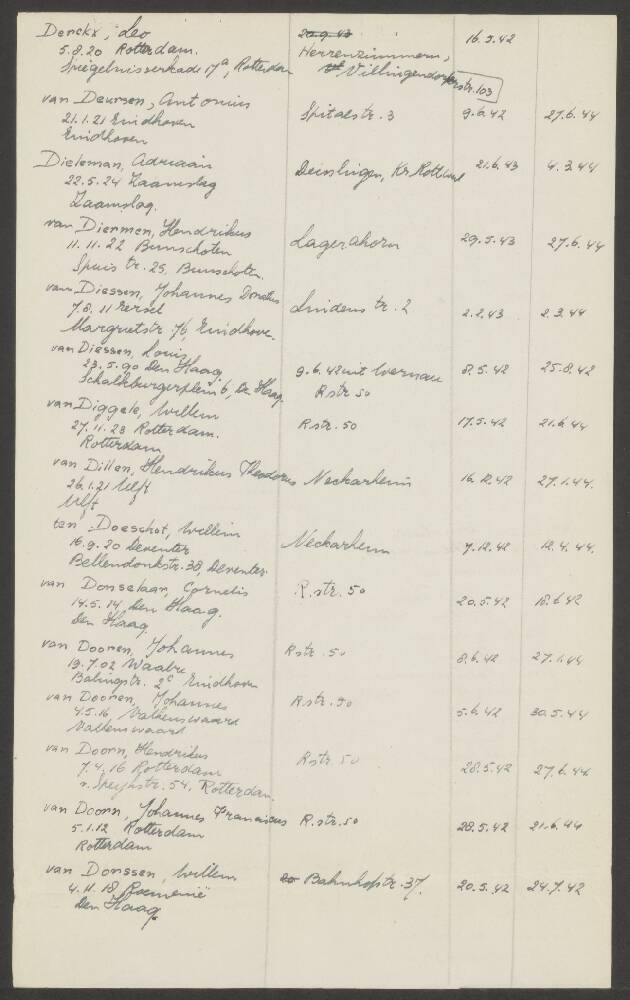 Denckx, Leo 20.9.43 16.5.42
5.8.20 Rotterdam. Herrenzimmern,
Spiegelnisserkade 17a, Rotterdam Villingendorferstr. 103
van Deursen, Antonius Spitalstr. 3 9.6.42 27.6.44
21.1.21 Eindhoven
Eindhoven
Dieleman, Adriaan Deisslingen, Kr. Rottweil 21.6.43 4.3.44
22.5.24 Zaamslag
Zaamslag.
van Diermen, Hendrikus Lagerahorn 29.5.43 27.6.44
11.11.22 Bunschoten
Spuistr. 25, Bunschoten.
van Diessen, Johannes Donatus Lindenstr. 2 2.2.43 2.3.44
7.8.11 Eersel
Margrietstr. 76, Eindhoven.
van Diessen, Louis 9.6.42 mit Wernau 8.5.42 25.8.42
23.5.90 Den Haag Rstr. 50
Schalkburgerplein 6, Den Haag.
van Diggele, Willem Rstr. 50 17.5.42 21.6.44
27.11.23 Rotterdam.
Rotterdam
van Dillen, Hendrikus Theodorus Neckarheim 16.12.42 27.1.44.
26.1.21 Ulft
Ulft
ten Doeschot, Willem Neckarheim 7.12.42 12.4.44.
16.9.20 Deventer
Bellendonkstr. 38, Deventer
van Donselaar, Cornelis R.str. 50 20.5.42 18.6.42
14.5.14 Den Haag.
Den Haag
van Dooren, Johannes Rstr. 50 8.6.42 27.1.44
19.7.02 Waalre
Balingstr. 2c Eindhoven
van Dooren, Johannes Rstr. 50 5.6.42 30.5.44
4.5.16 Valkenswaard
Valkenswaard
van Doorn, Hendrikus Rstr. 50 28.5.42 27.6.44
7.4.16 Rotterdam
v. Speykstr. 54, Rotterdam
van Doorn, Johannes Franciscus R.str. 50 28.5.42 21.6.44
5.1.12 Rotterdam
Rotterdam
van Dorssen, Willem Bahnhofstr. 37. 20.5.42 24.7.42
4.11.18 Roemenië
Den Haag